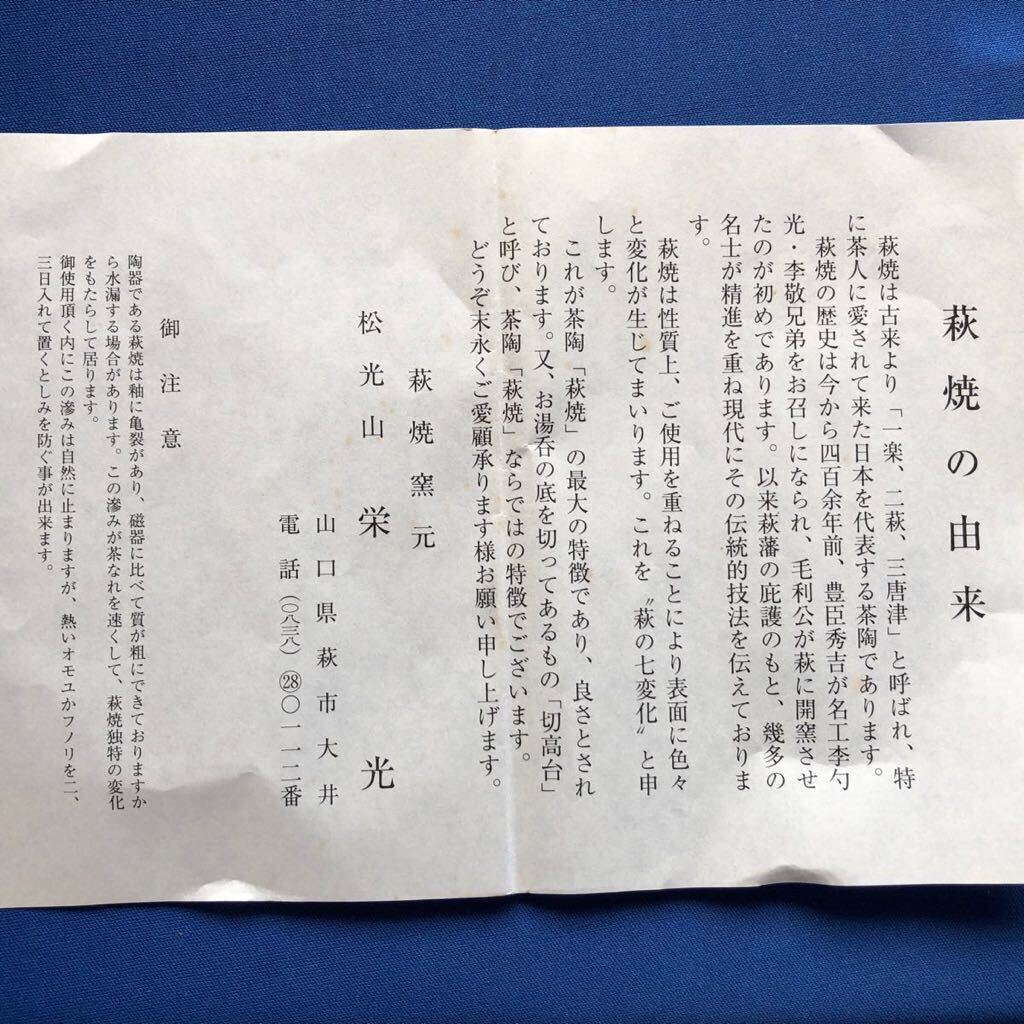 萩焼の由来
萩焼は古来より「一楽、二萩、三唐津」と呼ばれ、特
に茶人に愛されて来た日本を代表する茶陶であります。
萩焼の歴史は今から四百余年前、豊臣秀吉が名工李勺
光・李敬兄弟をお召しになられ、毛利公が萩に開窯させ
たのが初めであります。以来萩藩の庇護のもと、幾多の
名士が精進を重ね現代にその伝統的技法を伝えておりま
す。
萩焼は性質上、ご使用を重ねることにより表面に色々
と変化が生じてまいります。これを〝萩の七変化〟と申
します。
これが茶陶「萩焼」の最大の特徴であり、良さとされ
ております。又、お湯呑の底を切ってあるもの「切高台」
と呼び、茶陶「萩焼」ならではの特徴でございます。
どうぞ末永くご愛顧承ります様お願い申し上げます。
萩焼窯元
松光山 栄光
山口県萩市大井
電話(〇八三八)㉘〇一一二番
御注意
陶器である萩焼は釉に亀裂があり、磁器に比べて質が粗にできておりますか
ら水漏する場合があります。この滲みが茶なれを速くして、萩焼独特の変化
をもたらして居ります。
御使用頂く内にこの滲みは自然に止まりますが、熱いオモユかフノリを二、
三日入れて置くとしみを防ぐ事が出来ます。